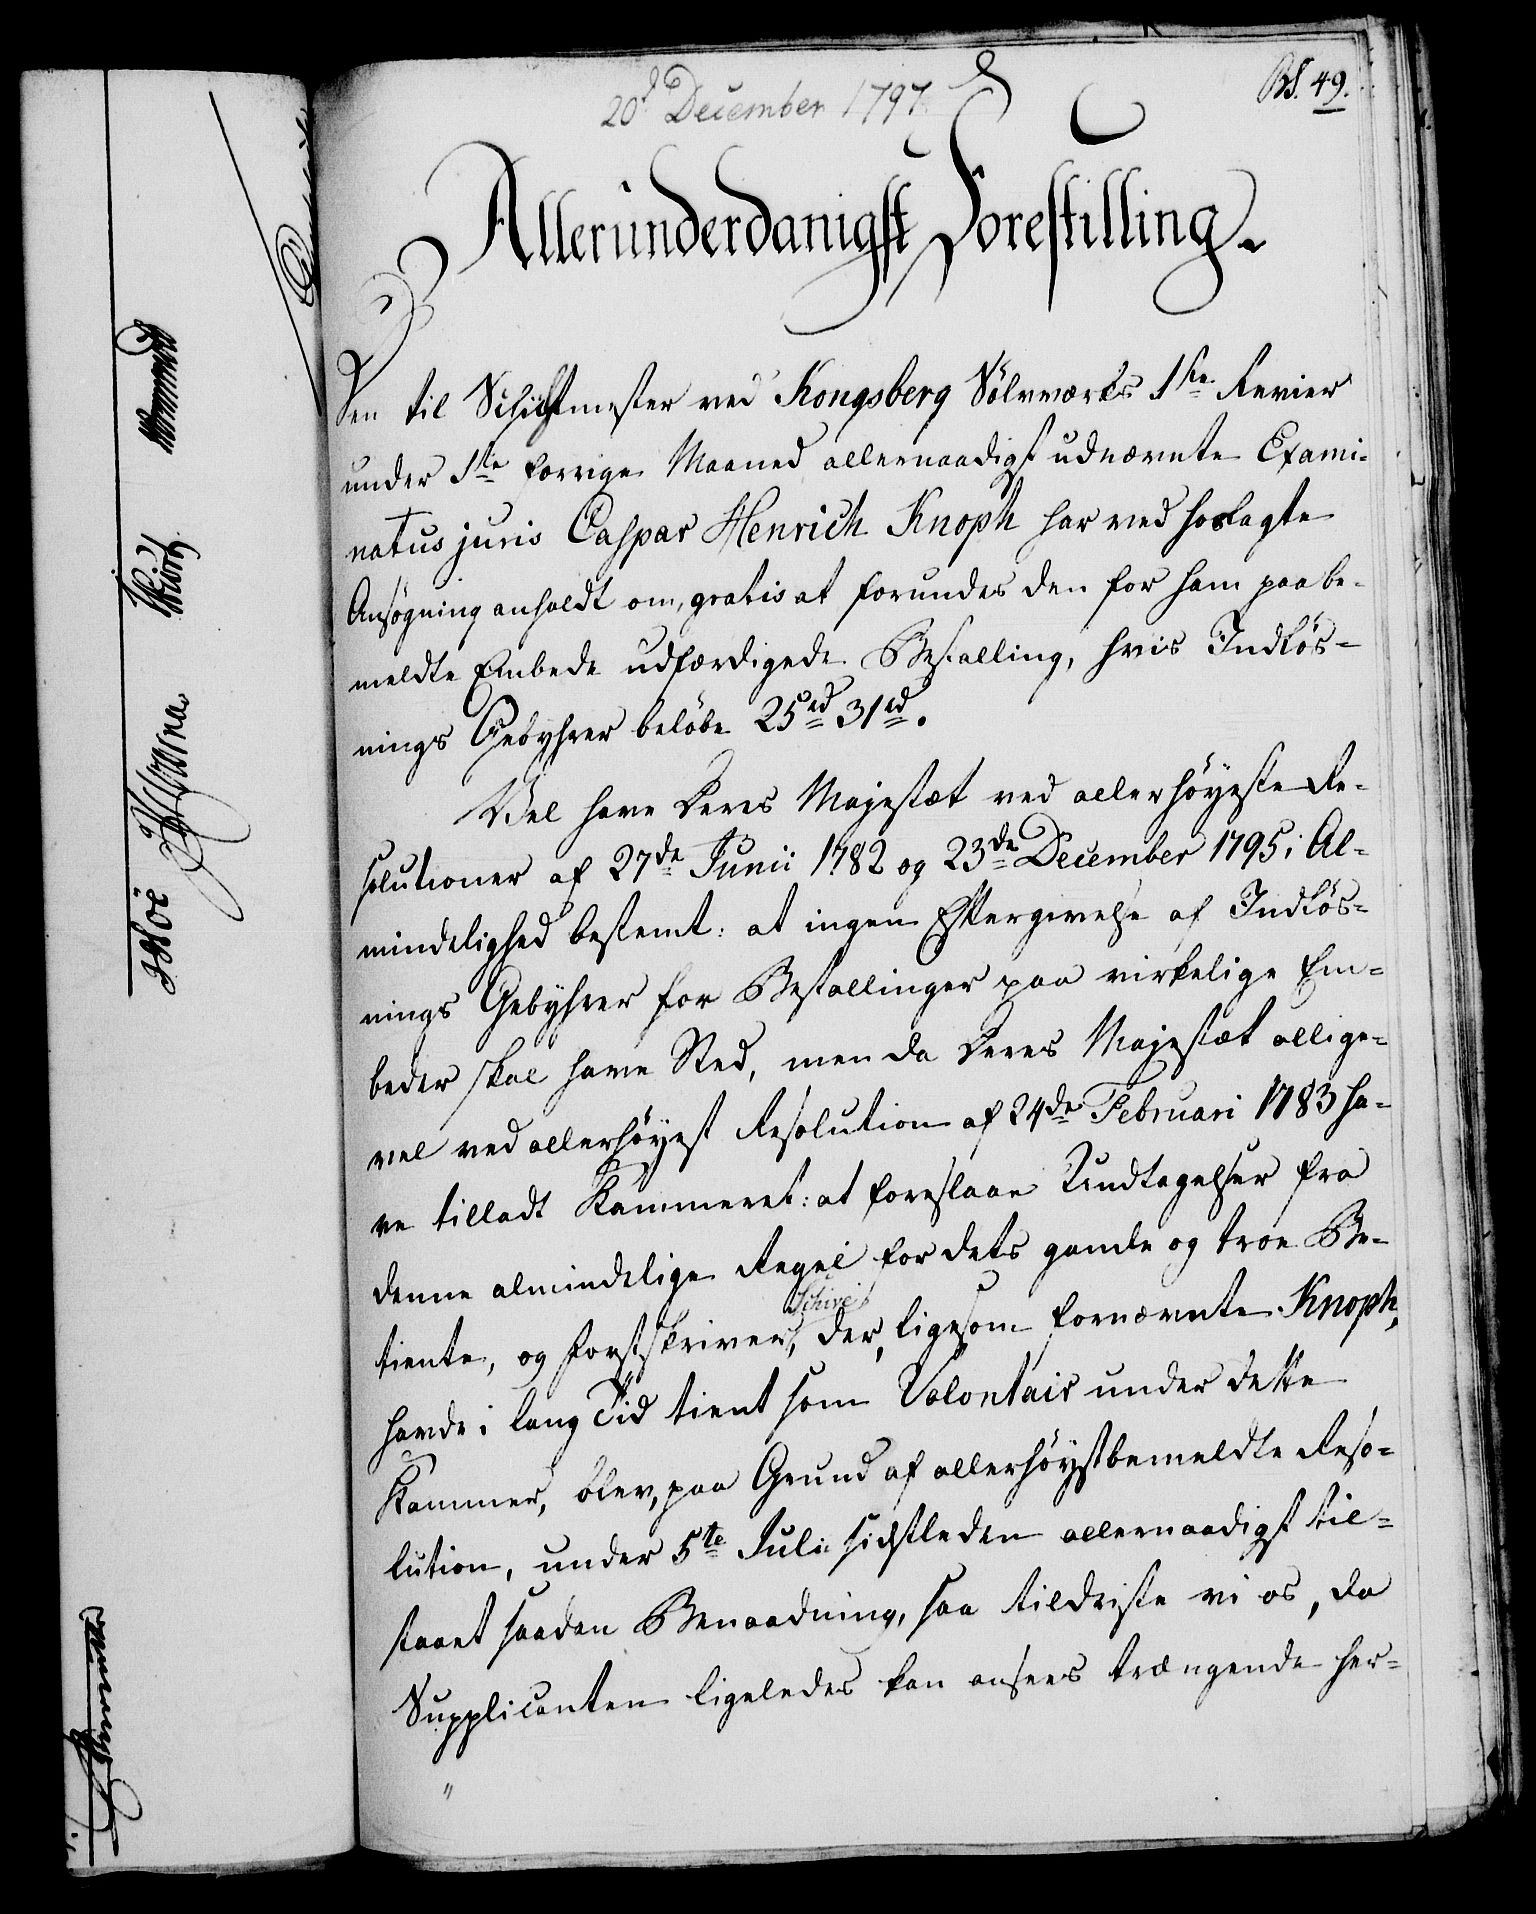 20d December 1797
Bl. 49.
Allerunderdanigst Forestilling.
Den til Schichtmester ved Kongsberg Sölvværks 1ste Revier
under 1ste forrige Maaned allernaadigst udnævnte Exami-
natus juris Caspar Henrich Knoph har ved hoslagte
Ansögning anholdt om, gratis at forundes den for ham paa be-
meldte Embede udfærdigede Bestalling, hvis Indlös-
nings Gebyhrer belöbe 25rd 31rd.
Vel have Deres Majestæt ved allerhöyeste Re-
solutioner af 27de Junii 1782 og 23de December 1795 i Al-
mindelighed bestemt: at ingen Eftergivelse af Indlös-
nings Gebyhrer for Bestallinger paa virkelige Em-
beder skal have Sted, men da Deres Majestæt allige-
vel ved allerhöyest Resolution af 24de Februari 1783 ha-
ve tilladt Kammeret: at foreslaae Undtagelser fra
denne almindelige Regel for dets gamle og troe Be-
tiente, og Forstskriver Schive, der, ligesom fornævnte Knoph,
havde i lang Tid tient som Volontair under dette
Kammer, blev, paa Grund af allerhöystbemeldte Reso-
lution, under 5te Juli sidstleden allernaadigst til-
staaet saadan Benaadning, saa tildriste vi os, da
Supplicanten ligeledes kan ansees trængende her-
"